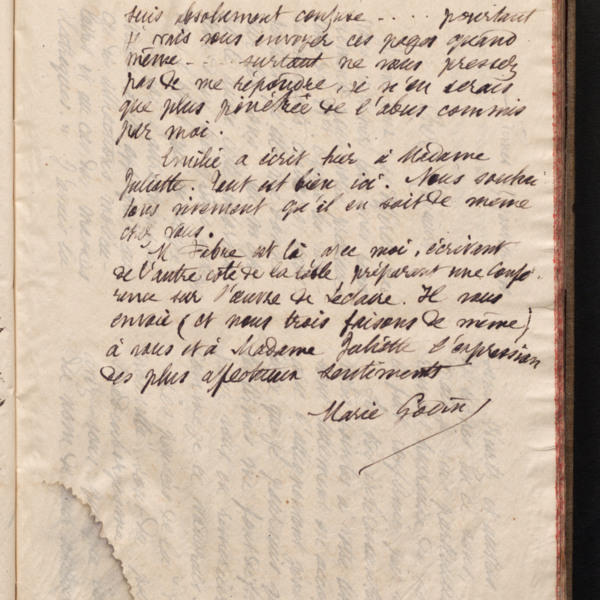 suis absolument confuse .... pourtant
je vais vous envoyer ces pages quand
même - surtout ne vous pressez
pas de me répondre, je n'en serais
que plus pénétrée de l'abus commis
par moi.
Emilie a écrit hier à Madame
Juliette. Tout est bien ici. Nous souhai
tons vivement qu'il en soit de même
chez vous.
M Fabre est là avec moi, écrivant
de l'autre côté de la table, préparant une Confé-
rence sur l'œuvre de Leclaire. Il vous
envoie (et nous trois faisons de même)
à vous et à Madame Juliette l'expression
des plus affectueux sentiments
Marie Godin